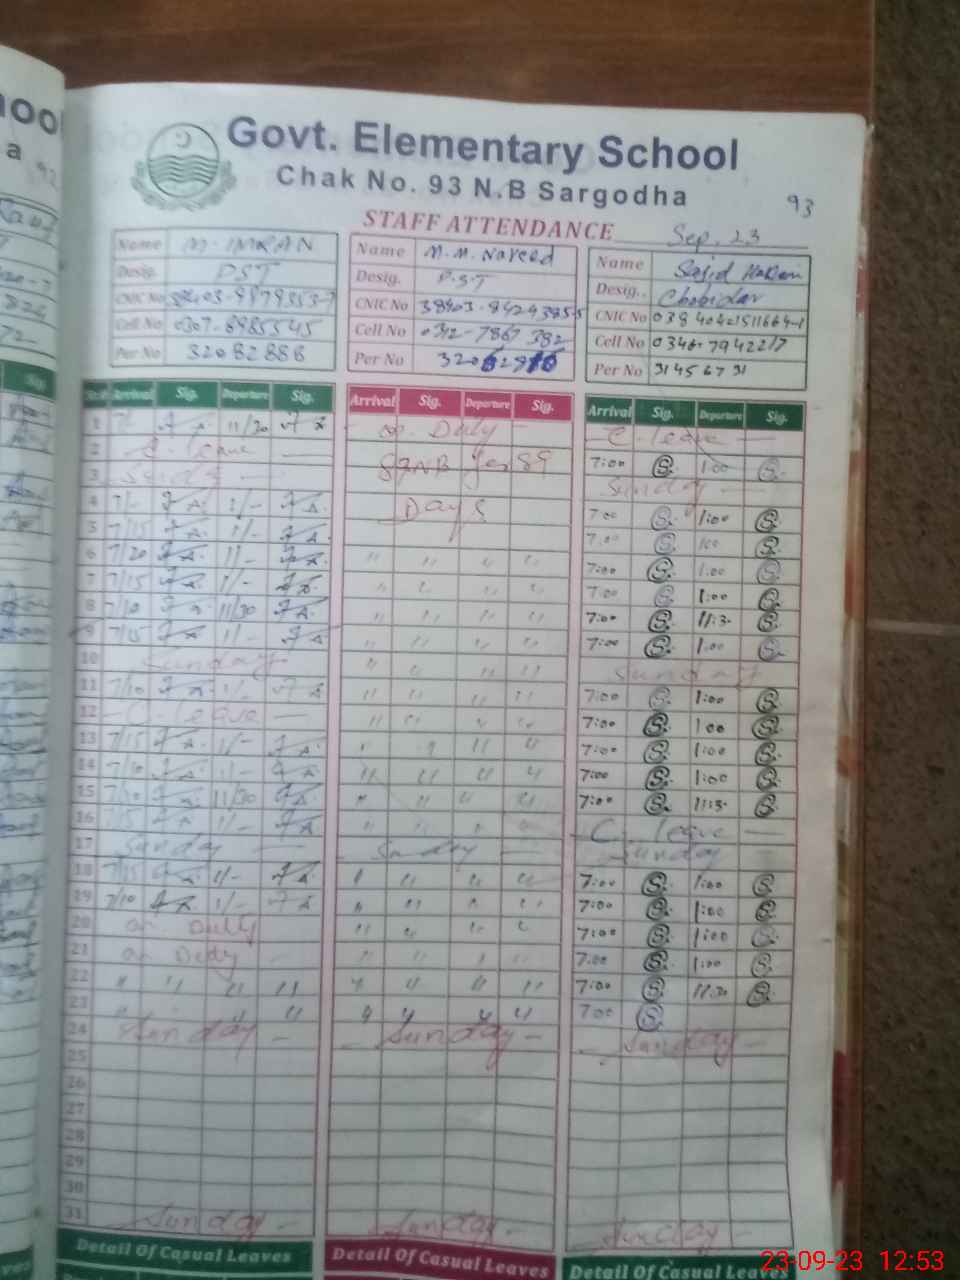 Govt. Elementary School
Chak No. 93 N.B Sargodha
93
STAFF ATTENDANCE Sep. 23
Name M. IMRAN
Desig. PST
CNIC No
Cell No 0307-6985545
Per No 32082886
Name M.M. Naveed
Desig. P.S.T
CNIC No
Cell No 0312-7867382
Per No
Name Sajid
Desig. Chokidar
CNIC No
Cell No 0346-7942217
Per No 31456731
Arrival Sig. Departure Sig. Arrival Sig. Departure Sig. Arrival Sig. Departure Sig.
1 7/- 11/30 on. Duty - C. leave -
2 C. leave - 7:00 S. 1:00 S.
3 Sunday - Sunday -
4 7/- 1/- Days 7:00 S. 1:00 S.
5 7/15 1/- 7:00 S. 1:00 S.
6 7/20 1/- " " " " 7:00 S. 1:00 S.
7 7/15 1/- " " " " 7:00 S. 1:00 S.
8 7/10 11/30 " " " " 7:00 S. 11:3- S.
9 7/15 1/- " " " " 7:00 S. 1:00 S.
10 Sunday " " " " Sunday
11 7/10 1/- " " " " 7:00 S. 1:00 S.
12 - C. leave - " " " " 7:00 S. 1:00 S.
13 7/15 1/- " " " " 7:00 S. 1:00 S.
14 7/10 1/- " " " " 7:00 S. 1:00 S.
15 7/10 11/30 " " " " 7:00 S. 11:3- S.
16 7/15 1/- " " " " - C. leave -
17 Sunday - - Sunday - Sunday
18 7/15 1/- " " " " 7:00 S. 1:00 S.
19 7/10 1/- " " " " 7:00 S. 1:00 S.
20 on Duty " " " " 7:00 S. 1:00 S.
21 on Duty - " " " " 7:00 S. 1:00 S.
22 " " " " " " " " 7:00 S. 11:30 S.
23 " " " " " " " " 7:00 S.
24 Sunday - - Sunday - - Sunday -
25
26
27
28
29
30
31 Sunday - - Sunday - - Sunday -
Detail Of Casual Leaves Detail Of Casual Leaves Detail Of Casual Leaves
23-09-23 12:53